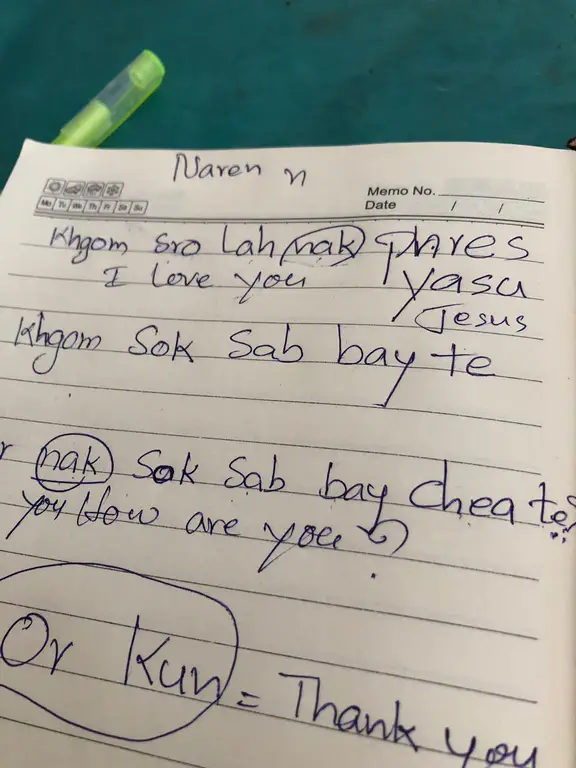 Naren n
Mo Tu We Th Fr Sa Su
Memo No.
Date / /
Khgom Sro lah nak phres
I love you yasu
Jesus
Khgom Sok Sab bay te
r nak Sok Sab bay chea te?
you How are you?
Or Kun = Thank you